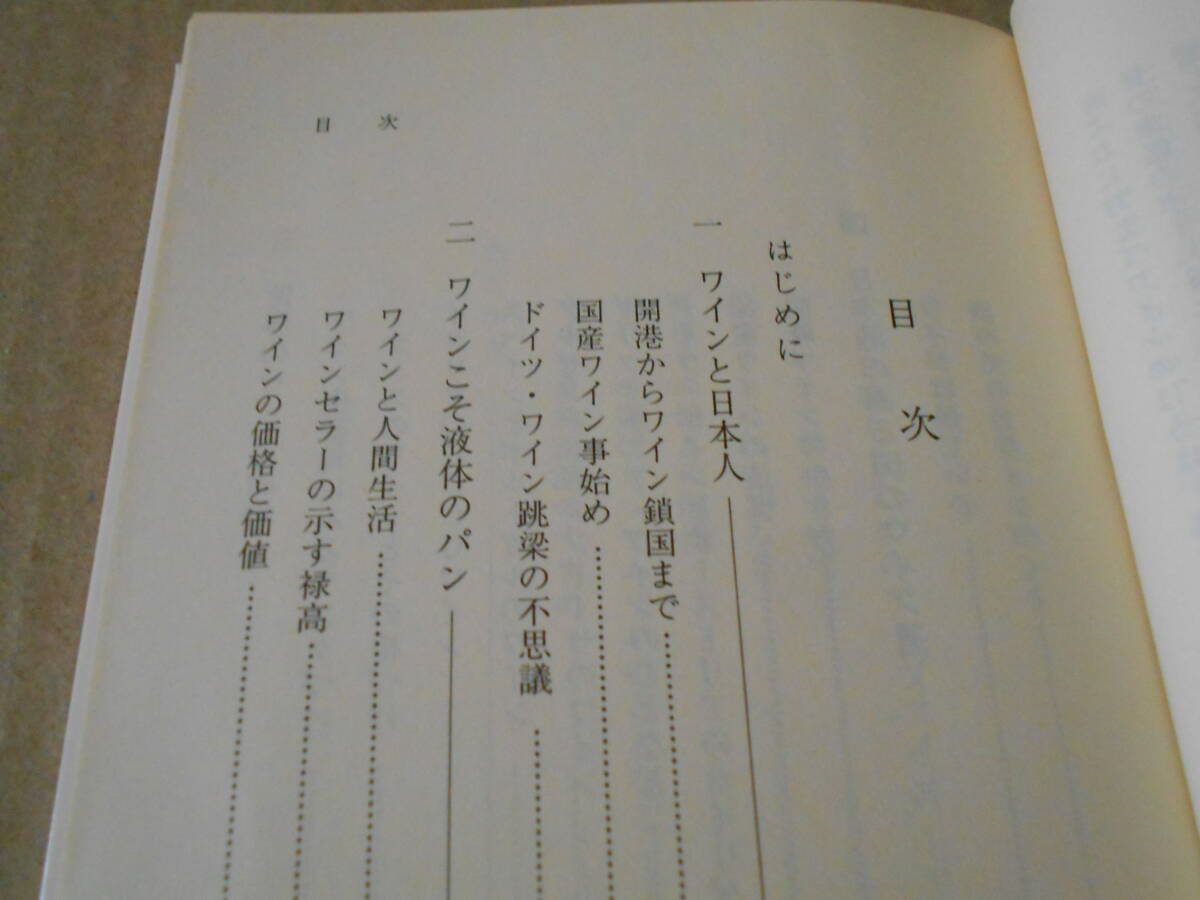 目次
はじめに
一 ワインと日本人
開港からワイン鎖国まで
国産ワイン事始め
ドイツ・ワイン跳梁の不思議
二 ワインこそ液体のパン
ワインと人間生活
ワインセラーの示す禄高
ワインの価格と価値
目次